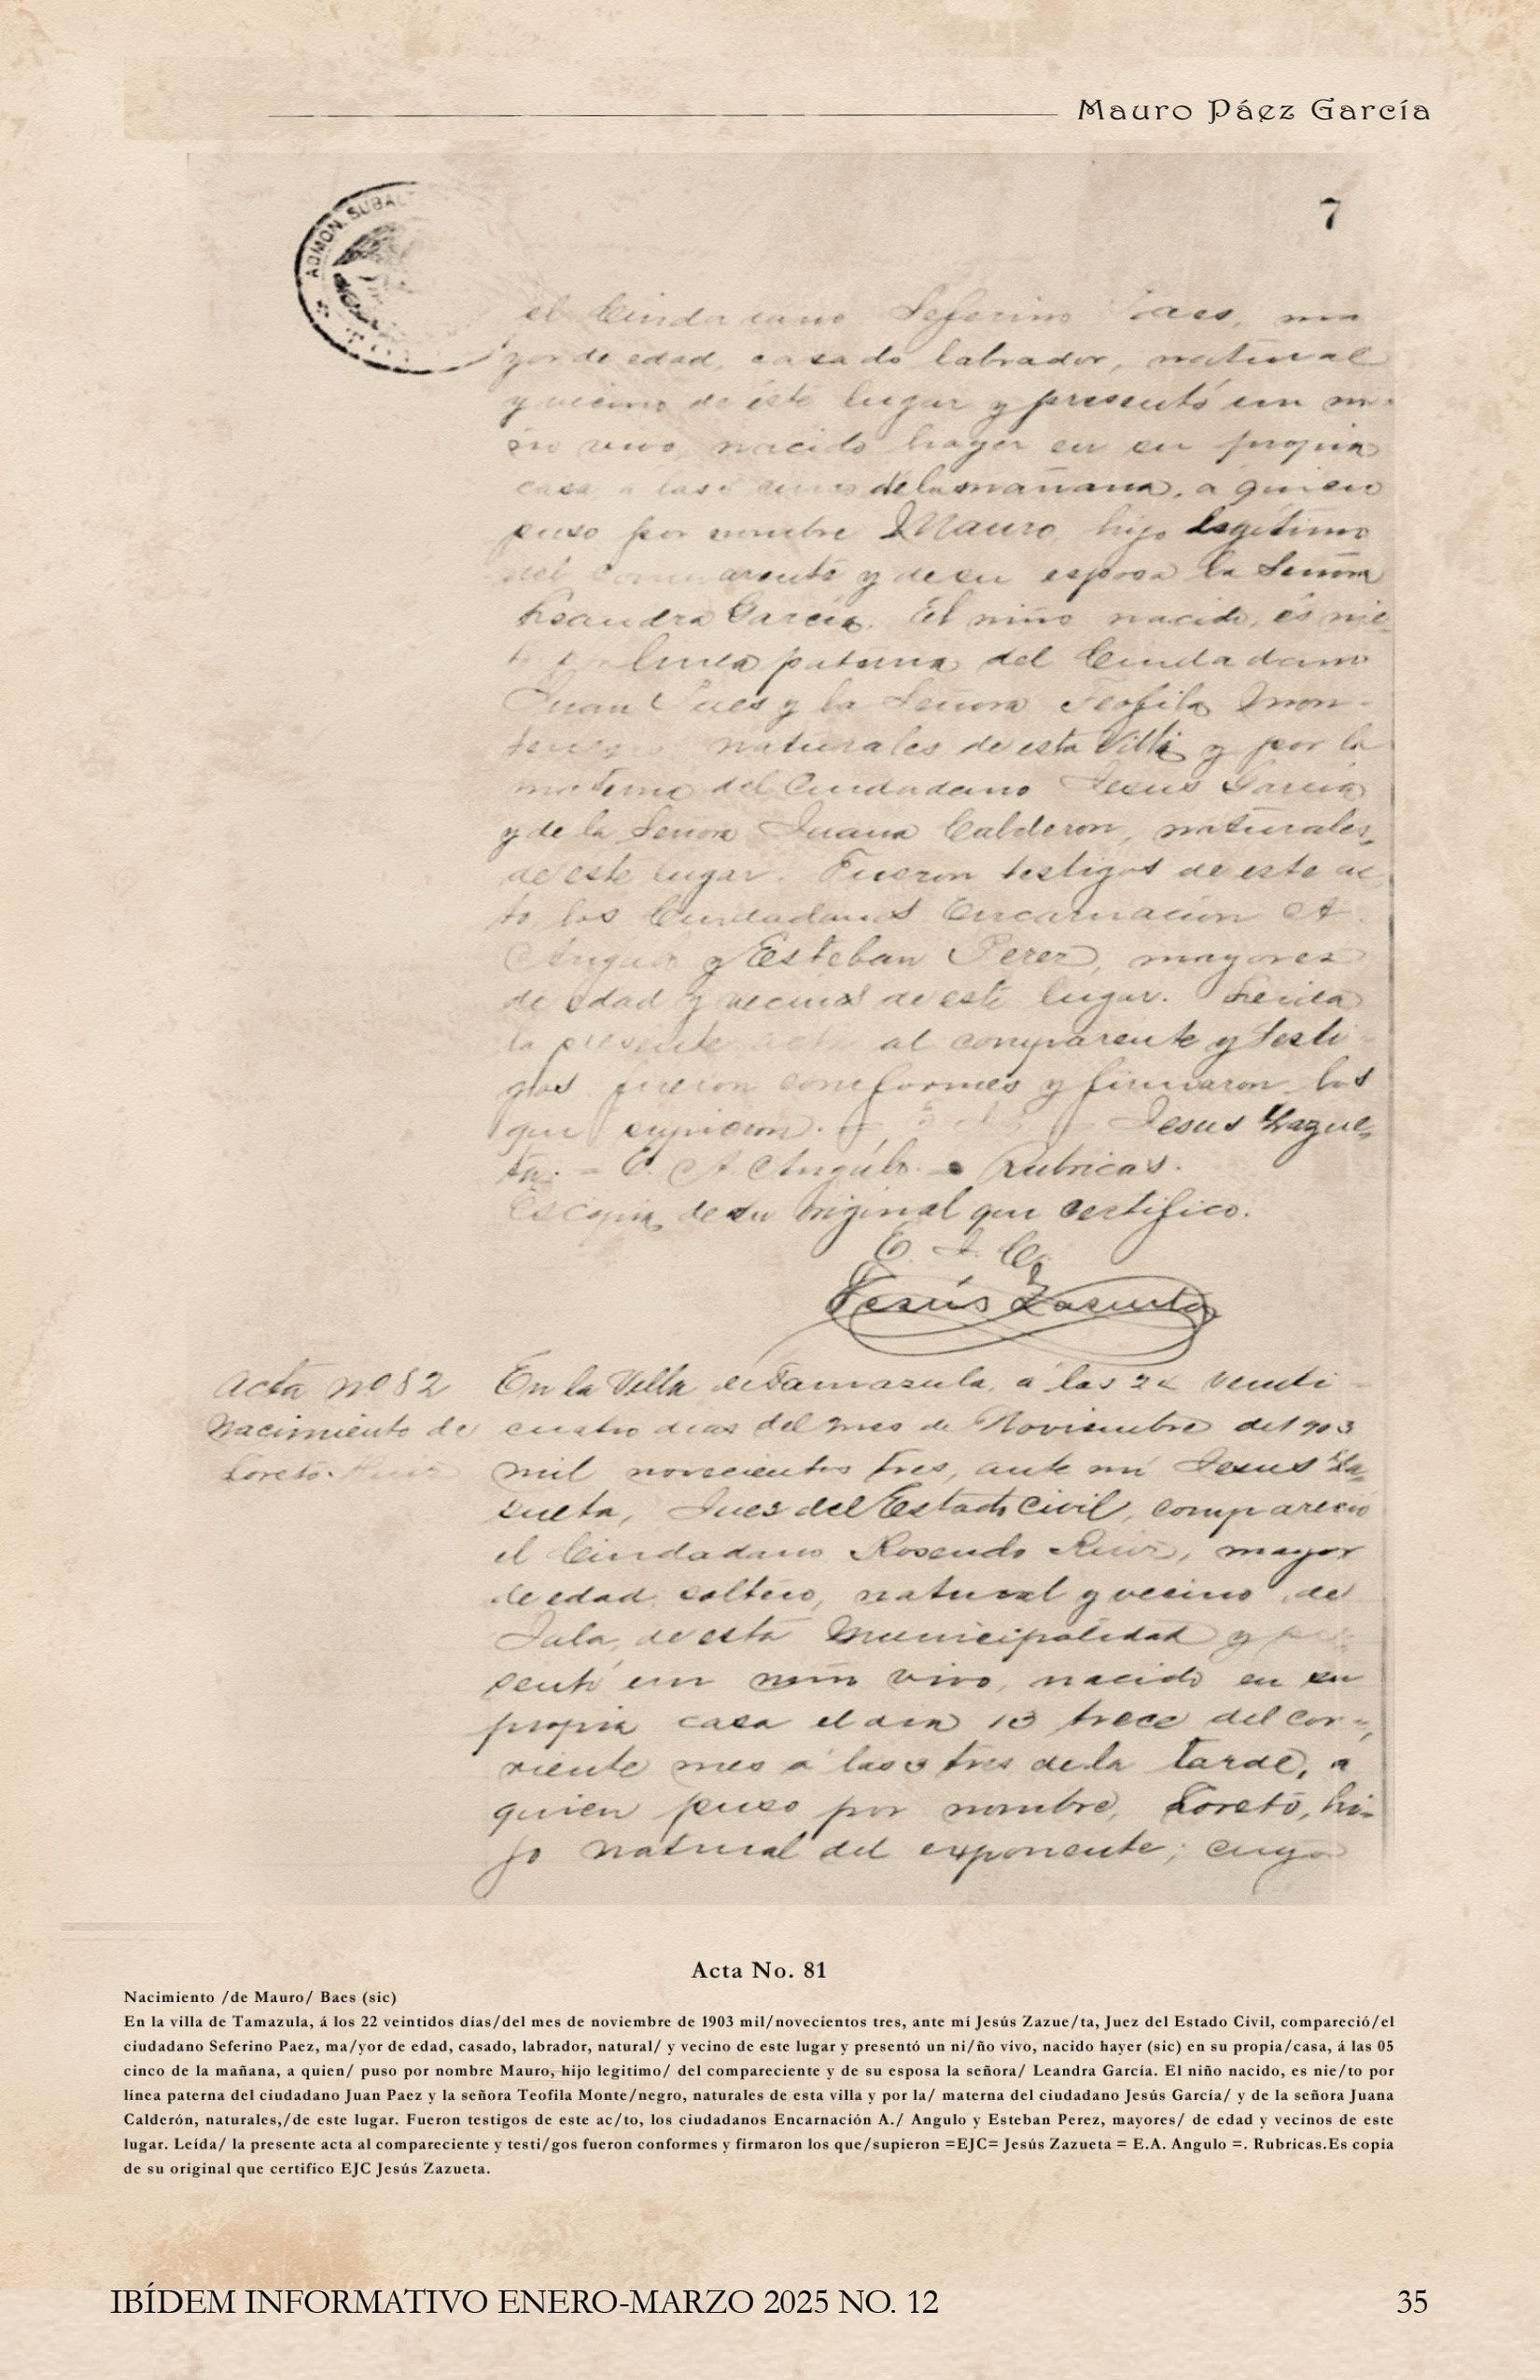 Mauro Páez García
ADMON. SUBAL
7
el Ciudadano Seferino Paes, ma
yor de edad, casado labrador, natural
y vecino de éste lugar y presentó un ni-
ño vivo, nacido hayer en su propia
casa a las 5 cinco de la mañana, a quien
puso por nombre Mauro, hijo legitimo
del comparente y de su esposa la Señora
Leandra Garcia. El niño nacido, es nie-
to por linea paterna del Ciudadano
Juan Paes y la Señora Teofila Mon-
tenegro naturales de esta Villa y por la
materna del Ciudadano Jesus Garcia
y de la Señora Juana Calderon, naturales,
de este lugar. Fueron testigos de este ac
to los Ciudadanos Encarnacion A.
Angulo y Esteban Perez, mayores
de edad y vecinos de este lugar. Leida
la presente acta al comparente y testi-
gos fueron conformes y firmaron los
que supieron. Jesus Zazue-
ta. = E. A. Angulo. = Rubricas.
Es copia de su original que certifico.
E. J. C.
Jesús Zazueta
Acta nº 82
Nacimiento de
Loreto Ruiz
En la Villa de Tamazula, á las 24 veinti-
cuatro dias del mes de Noviembre del 903
mil novecientos tres, ante mi Jesus Za-
zueta, Jues del Estado Civil, comparecio
el Ciudadano Rosendo Ruiz, mayor
de edad, soltero, natural y vecino de
Jala, de esta Municipalidad y pre-
sentó un niño vivo, nacido en su
propia casa el dia 13 trece del cor-
riente mes á las 3 tres de la tarde, a
quien puso por nombre, Loreto, hi-
jo natural del exponente; cuyo
Acta No. 81
Nacimiento /de Mauro/ Baes (sic)
En la villa de Tamazula, á los 22 veintidos días/del mes de noviembre de 1903 mil/novecientos tres, ante mí Jesús Zazue/ta, Juez del Estado Civil, compareció/el
ciudadano Seferino Paez, ma/yor de edad, casado, labrador, natural/ y vecino de este lugar y presentó un ni/ño vivo, nacido hayer (sic) en su propia/casa, á las 05
cinco de la mañana, a quien/ puso por nombre Mauro, hijo legitimo/ del compareciente y de su esposa la señora/ Leandra García. El niño nacido, es nie/to por
línea paterna del ciudadano Juan Paez y la señora Teofila Monte/negro, naturales de esta villa y por la/ materna del ciudadano Jesús García/ y de la señora Juana
Calderón, naturales,/de este lugar. Fueron testigos de este ac/to, los ciudadanos Encarnación A./ Angulo y Esteban Perez, mayores/ de edad y vecinos de este
lugar. Leída/ la presente acta al compareciente y testi/gos fueron conformes y firmaron los que/supieron =EJC= Jesús Zazueta = E.A. Angulo =. Rubricas.Es copia
de su original que certifico EJC Jesús Zazueta.
IBÍDEM INFORMATIVO ENERO-MARZO 2025 NO. 12
35